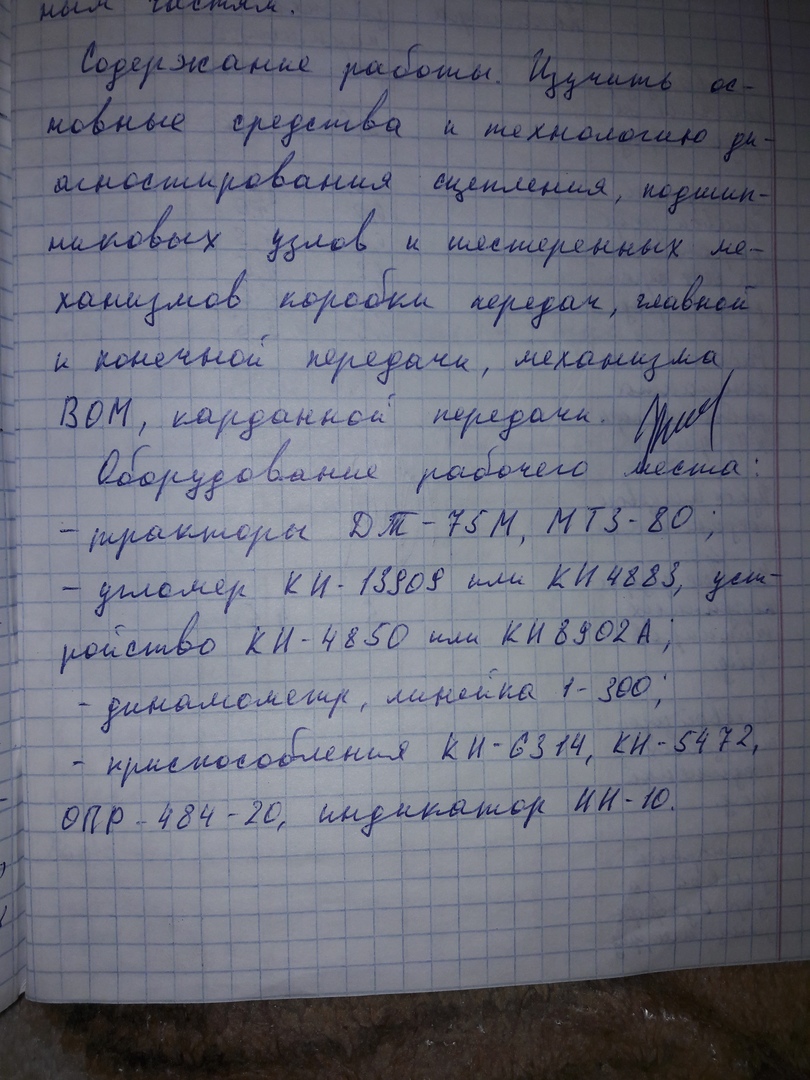 ным частям.
Содержание работы. Изучить ос-
новные средства и технологию ди-
агностирования сцепления, подшип-
никовых узлов и шестеренных ме-
ханизмов коробки передач, главной
и конечной передачи, механизма
ВОМ, карданной передачи.
Оборудование рабочего места:
- тракторы ДТ-75М, МТЗ-80;
- угломер КИ-13909 или КИ4883, уст-
ройство КИ-4850 или КИ8902А;
- динамометр, линейка 1-300;
- приспособления КИ-6314, КИ-5472,
ОПР-484-20, индикатор ИИ-10.